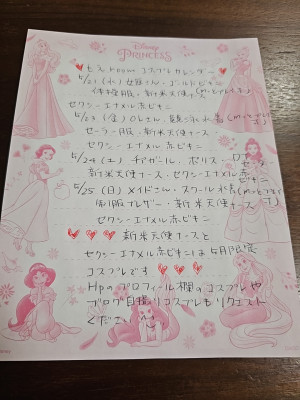 Disney
PRINCESS
もえroomコスプレカレンダー
5/21 (水) 女豹さん・ゴールドビキニ
体操服・新米天使
セクシーエナメル赤ビキニ
5/23 (金) OLさん、競泳水着
セーラー服・新米天使ナース
セクシーエナメル赤ビキニ
5/24 (土) チアガール、ポリス
新米天使ナース・セクシーエナメル赤
ビキニ
5/25 (日) メイドさん・スクール水着
制服ブレザー・新米天使ナース
セクシーエナメル赤ビキニ
新米天使ナースと
セクシーエナメル赤ビキニは5月限定
コスプレです
Hpのプロフィール欄のコスプレや
ブログ自撮りコスプレもリクエスト
ください